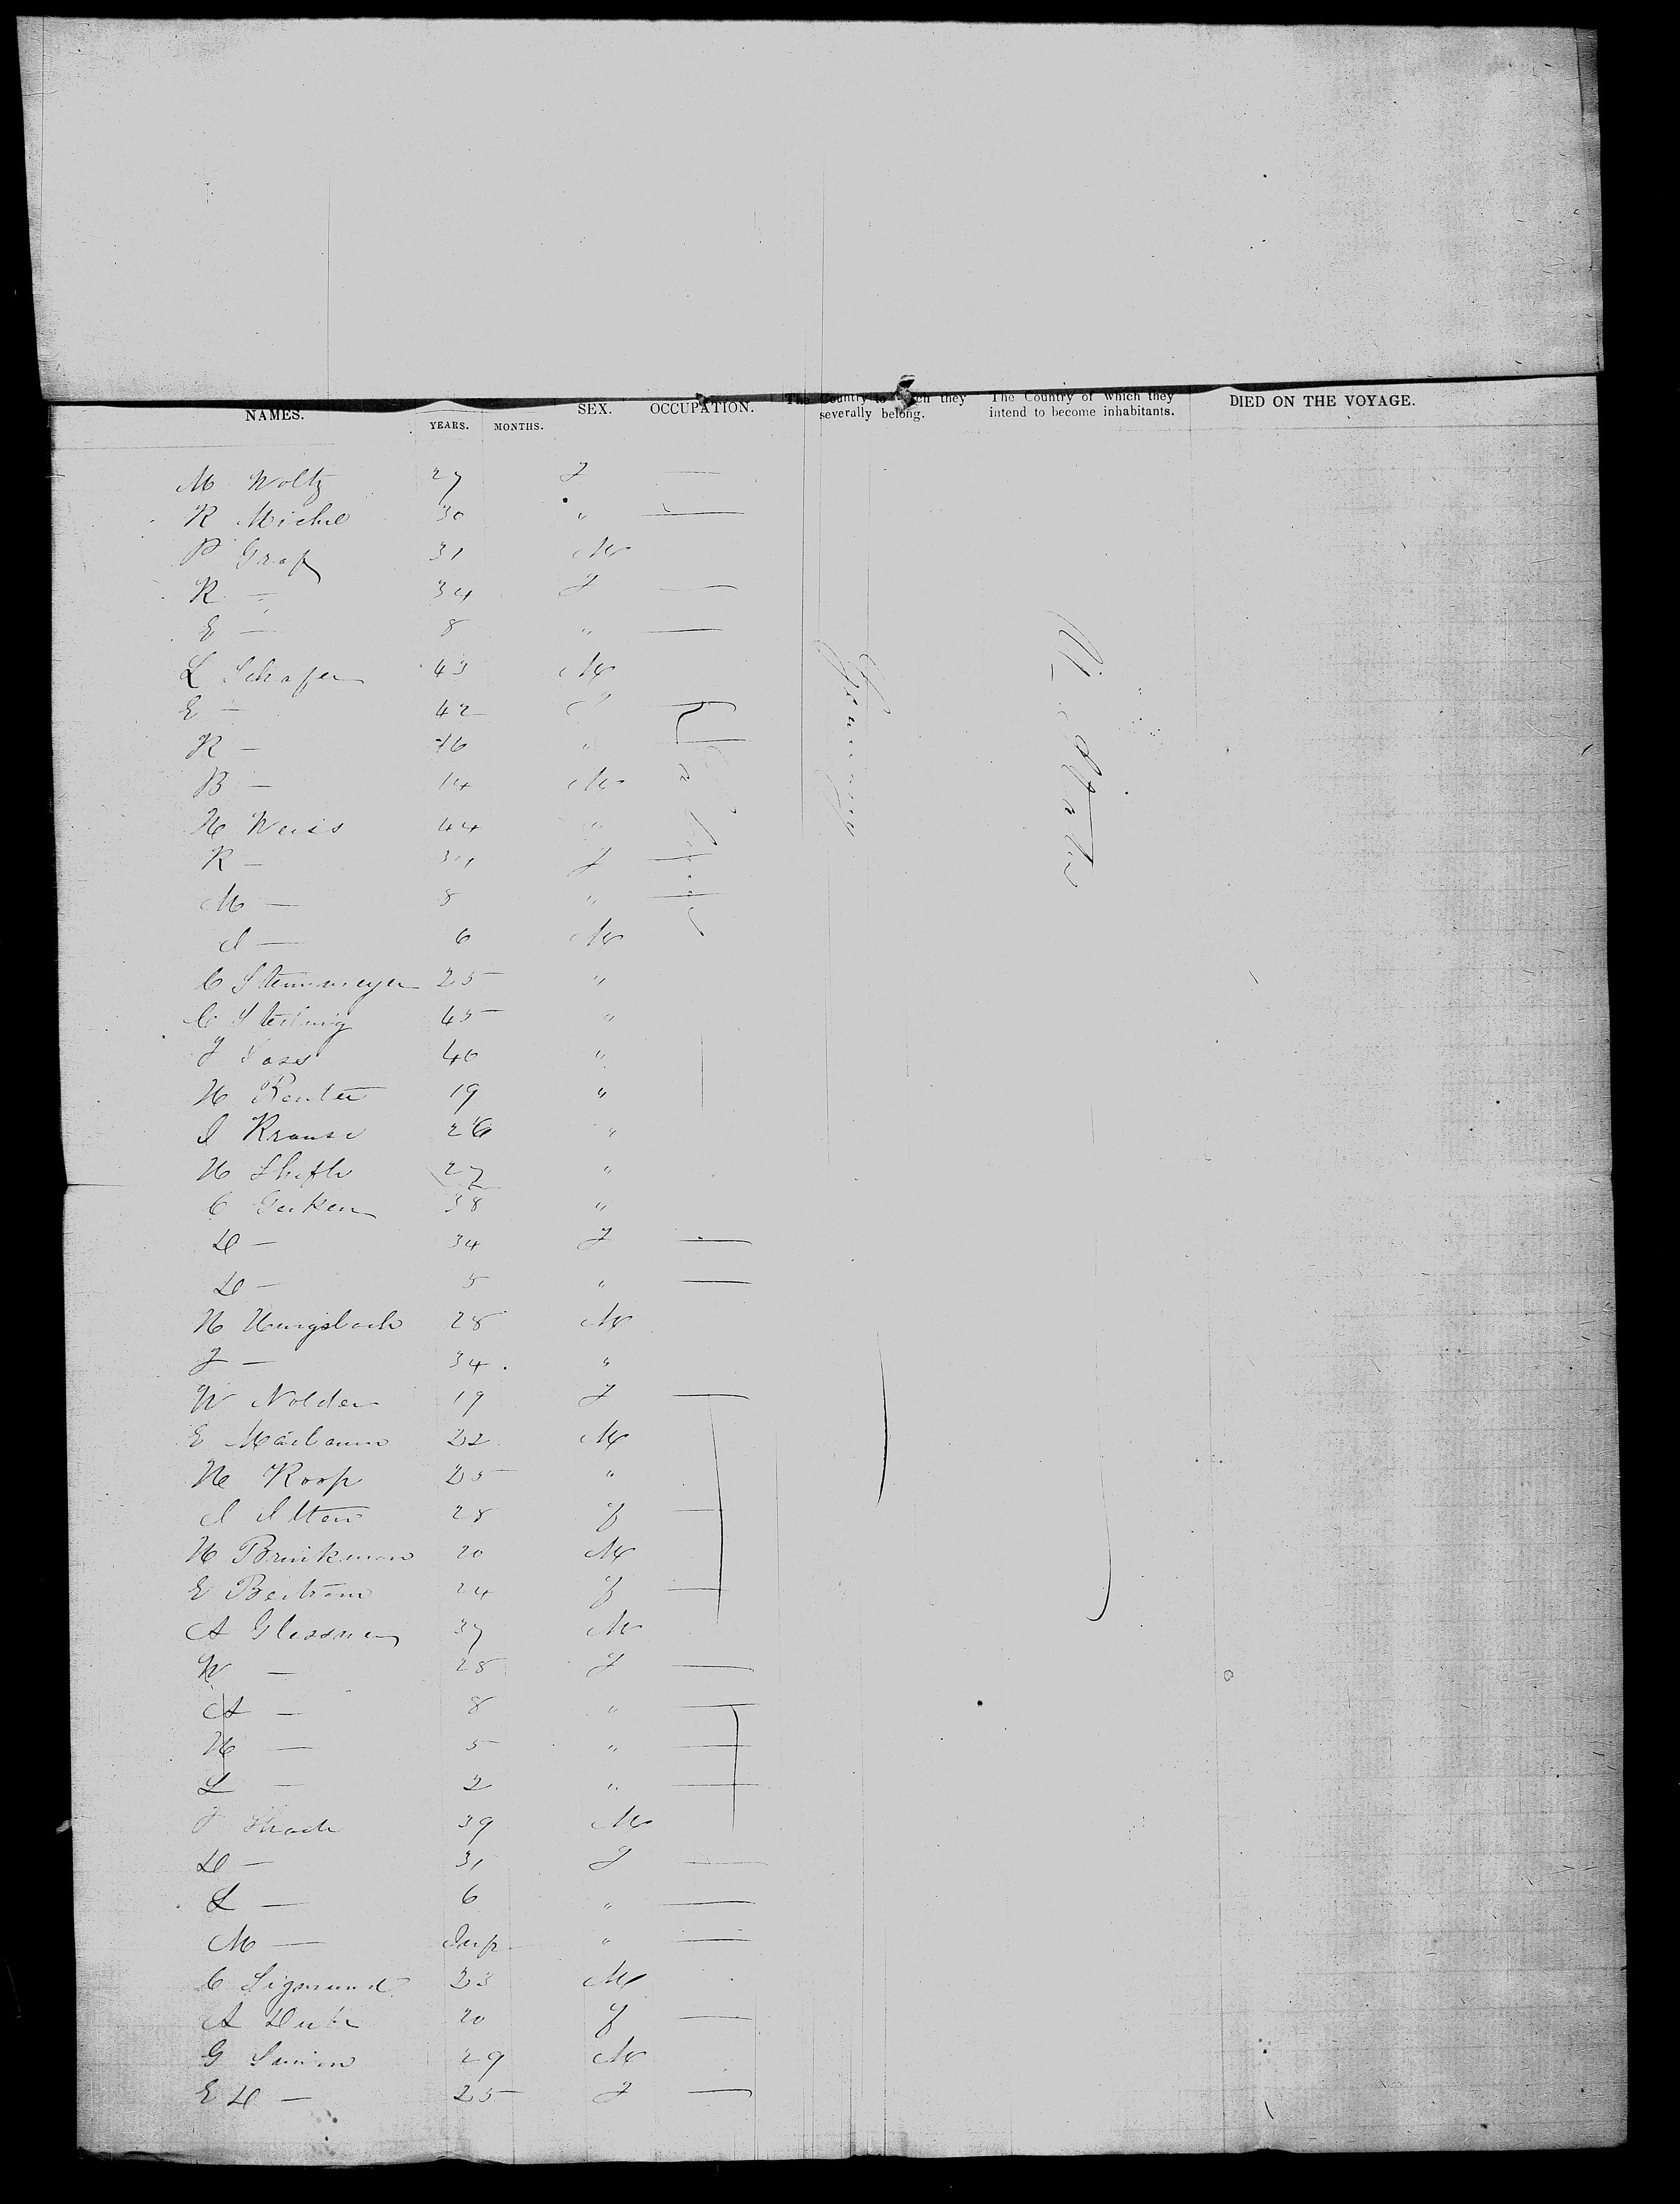 NAMES. YEARS. MONTHS. SEX. OCCUPATION. The Country to which they severally belong. The Country of which they intend to become inhabitants. DIED ON THE VOYAGE.
M Woltz 27 F —
R Michel 30 " —
P Graf 31 M
R — 34 F —
E — 8 " —
L Schafer 43 M
E — 42 F
R — 16 "
B — 14 M
H Weiss 44 "
R — 34 F —
M — 8 " —
I — 6 M
C Steinmeyer 25 "
C 45 "
J 46 "
H Reuter 19 "
I Krause 26 "
H 27 "
C Gerken 38 "
D — 34 F —
D — 5 " —
H 28 M
J — 34 "
W Nolden 19 F —
E Maibaum 22 M
H Koop 25 "
I 28 F —
H Brinkman 20 M
E Bertram 24 F —
A Glessner 37 M
W — 28 F —
A — 8 " —
H — 5 " —
L — 2 " —
J 39 M
D — 31 F —
L — 6 " —
M — Inf "  —
C Sigmund 23 M
A 20 F —
G Simon 29 M
E D — 25 F —
Germany
U. States